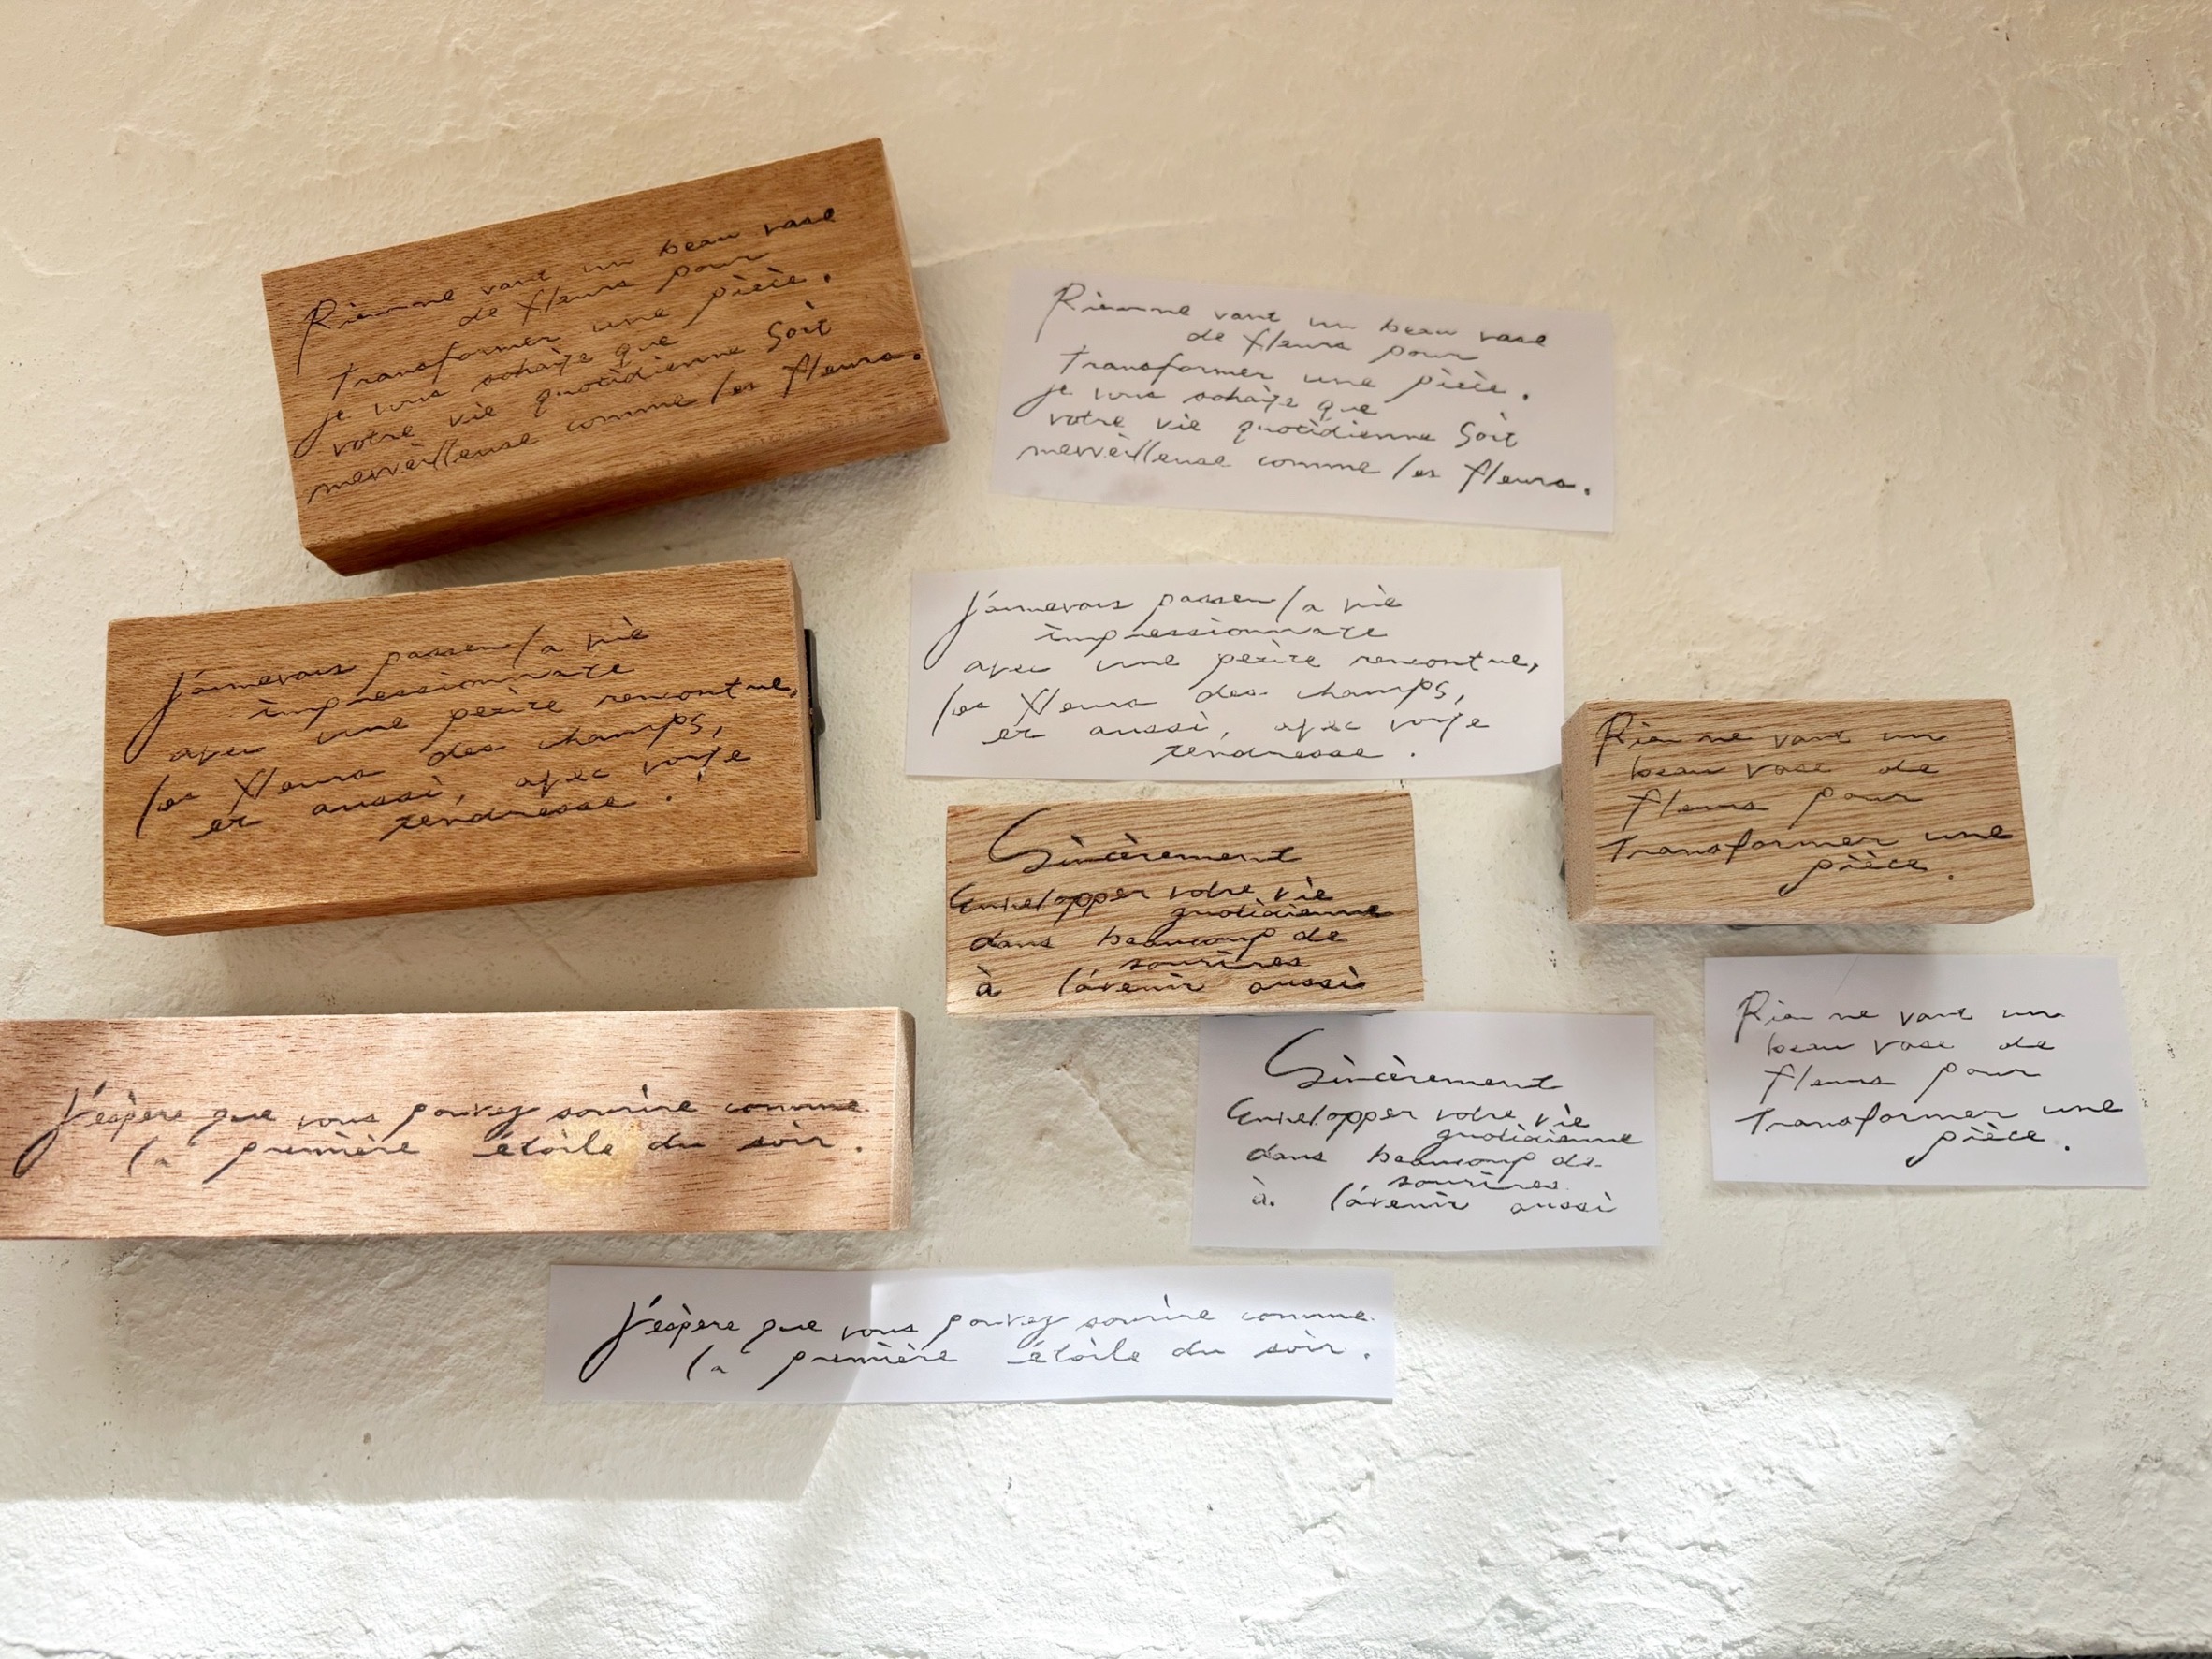 Rien ne vaut un beau vase
de fleurs pour
transformer une pièce.
je vous sohaite que
votre vie quotidienne Soit
merveilleuse comme les fleurs.
Rien ne vaut un beau vase
de fleurs pour
transformer une pièce.
je vous sohaite que
votre vie quotidienne Soit
merveilleuse comme les fleurs.
passer la vie
impressionnate
avec une petite rencontre,
les fleurs des champs,
et aussi, avec
tendresse.
passer la vie
impressionnate
avec une petite rencontre,
les fleurs des champs,
et aussi, avec
tendresse.
Rien ne vaut un
beau vase de
fleurs pour
transformer une
pièce.
Sincèrement
Envelopper votre vie
quotidienne
dans beaucoup de
sourires
à l'avenir aussi
Rien ne vaut un
beau vase de
fleurs pour
transformer une
pièce.
Sincèrement
Envelopper votre vie
quotidienne
dans beaucoup de
sourires
à l'avenir aussi
J'espère que vous pouvez sourire comme
la première étoile du soir.
J'espère que vous pouvez sourire comme
la première étoile du soir.